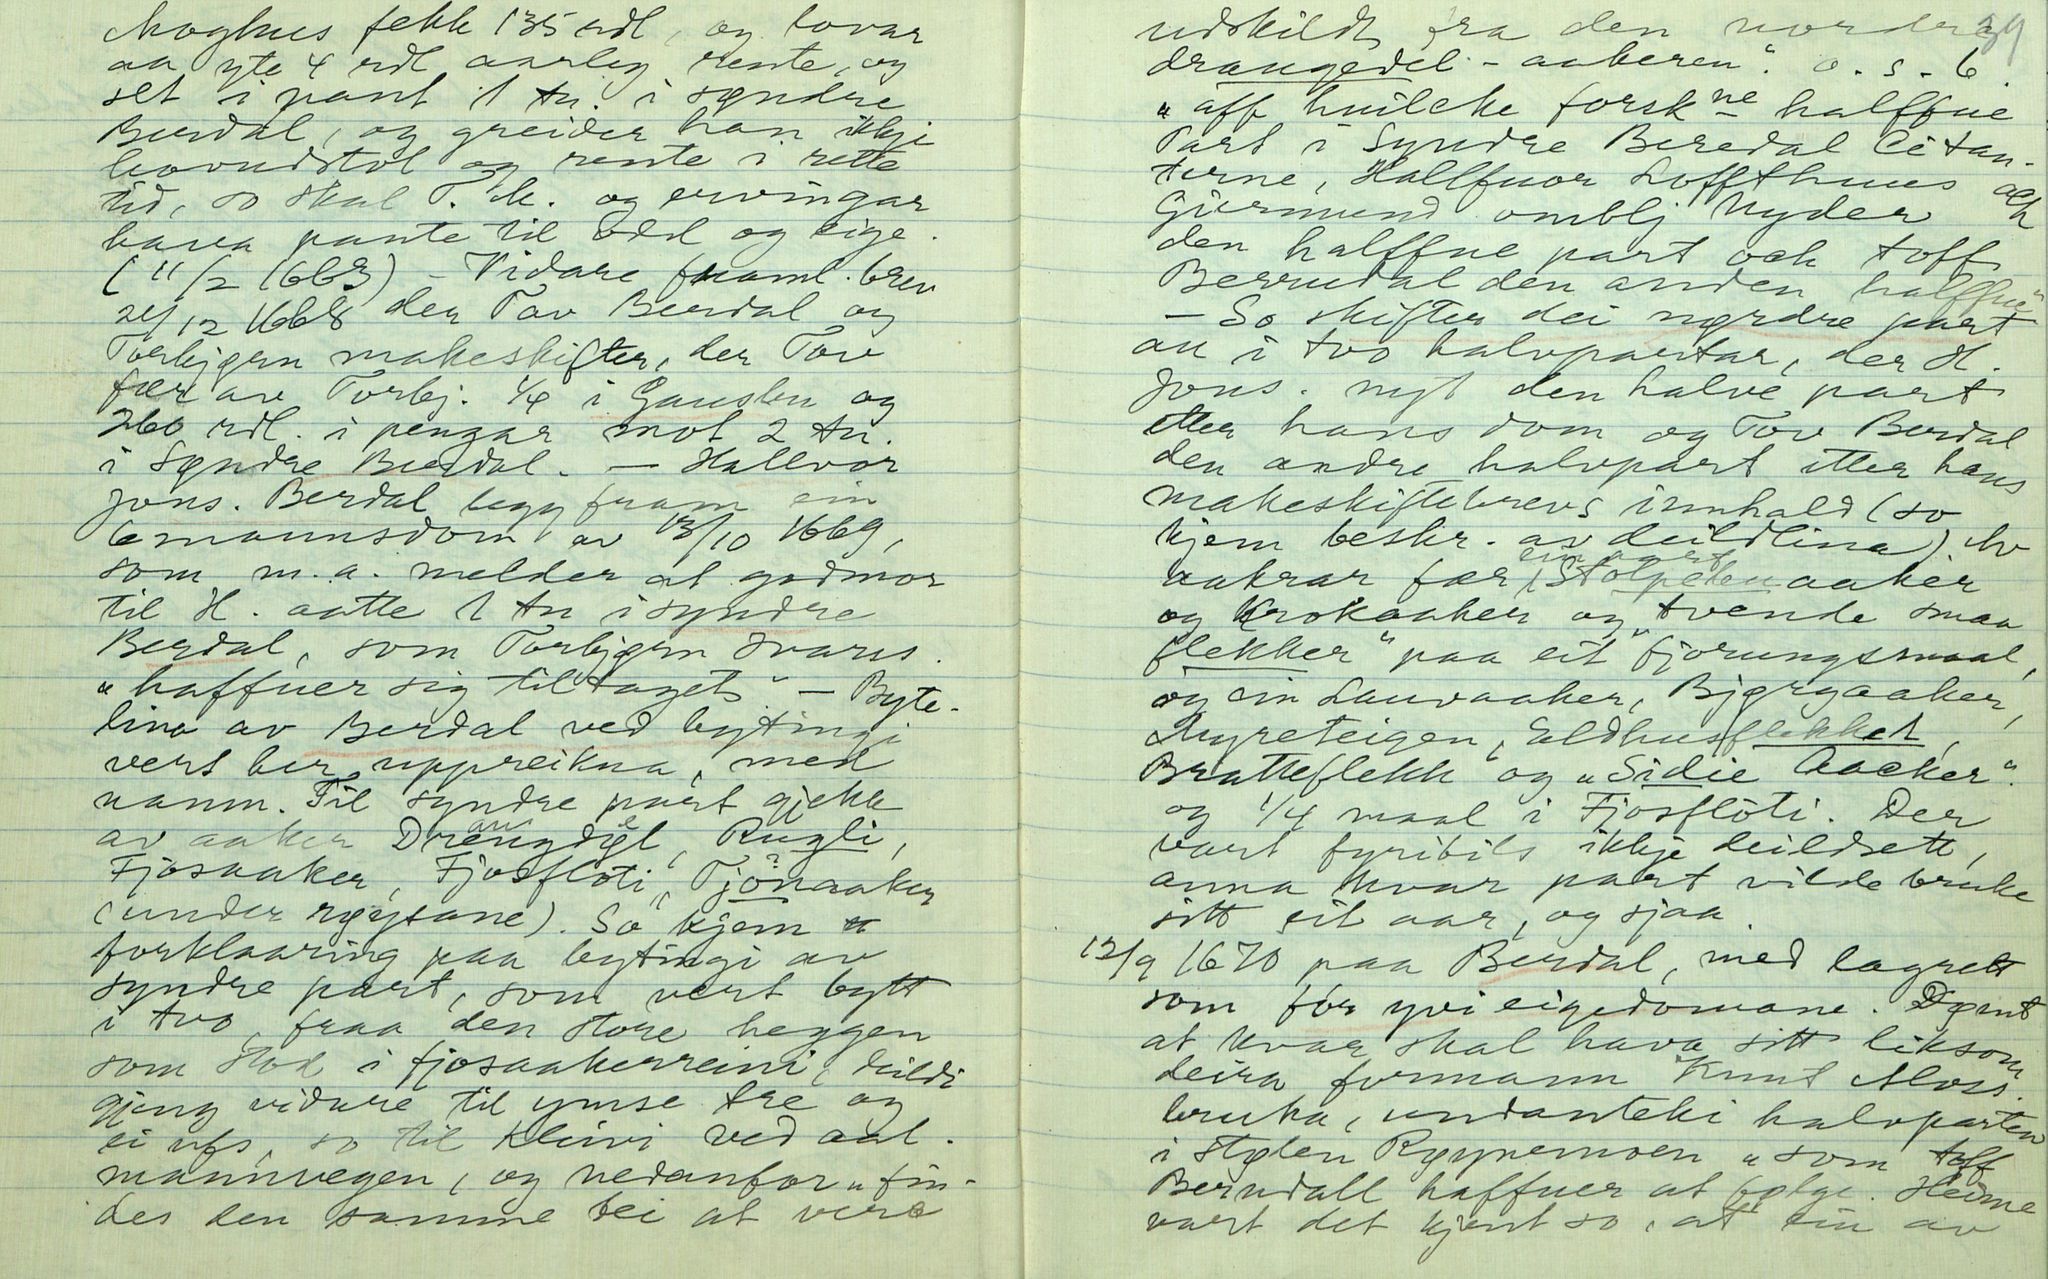 Moghus fekk 135 rdl, og lovar
aa yte 4 rdl aarleg rente, og
set i pant 1 tn. i søndre
Berdal, og greider han ikkje
hovudstol og rente i rette
tid, so skal T. M. og ervingar
hava pante til odel og eige.
(11/2 1663) – Vidare framl. brev
21/12 1668 der Tov Berdal og
Torbjørn makeskifter, der Tov
fær av Torbj. 1/4 i Gausbu og
260 rdl. i pengar mot 2 tn.
i søndre Berdal. – Hallvor
Jons. Berdal legg fram ein
6 mannsdom av 13/10 1669,
som m.a. melder at godmor
til H. aatte 1 tn i syndre
Berdal, som Torbjørn svarer
"haffuer sig tiltaget" – Byte-
lina av Berdal ved bytingi
vert her uppreikna, med
namn. Til syndre part gjekk
av aaker Draugdel, Rugli,
Fjosaaker, Fjosflöti, Tjönaaker
(under røysane). So kjem
forklaaring paa bytingi av
syndre part, som vert bytt
i tvo, fraa den store heggen
som stod i fjosaakerreini, deildi
gjeng vidare til ymse tre og
ei ufs, so til Kleivi ved aal-
mannvegen, og nedanfor "fin-
des den samme bei at vere
39
udskildt fra den nordre
draugedel-aakeren". o.s.b.
"aff huilcke forskne halffue
Part i Syndre Beredal Citan-
terne, Hallfuor Loffthuus och
Giermund omblj Nyder
den halffue part och toff
Berrudal den anden halffue"
– So skifter dei nørdre part
au i tvo halvpartar, der H.
Jons. nyt den halve part
etter hans dom og Tov Berdal
den andre halvpart etter hans
makeskiftebrevs innhald (so
kjem beskr. av deildlina). Av
aakrar fær ein
Stolpeteaaker
og Krokaaker og "tvende smaa
flekker" paa eit fjorungsmaal,
og ein Lauvaaker, Bjørgaaker,
Myreteigen, Eldhusflekket,
Bratteflekk og "Sidie Aacker".
og 1/4 maal i Fjosflöti. Der
vart fyribils ikkje deildsett,
anna kvar part vilde bruke
sitt eit aar, og sjaa
12/9 1670 paa Berdal, med lagrett
som fór yvi eigedomane. Dømt
at kvar skal hava sitt liksom
deira formann Knut Aloss.
bruka, undanteki halvparten
i stølen Røynemoen "som toff
Berudall haffuer at følge. Heime
vart det kjent so, at ein av